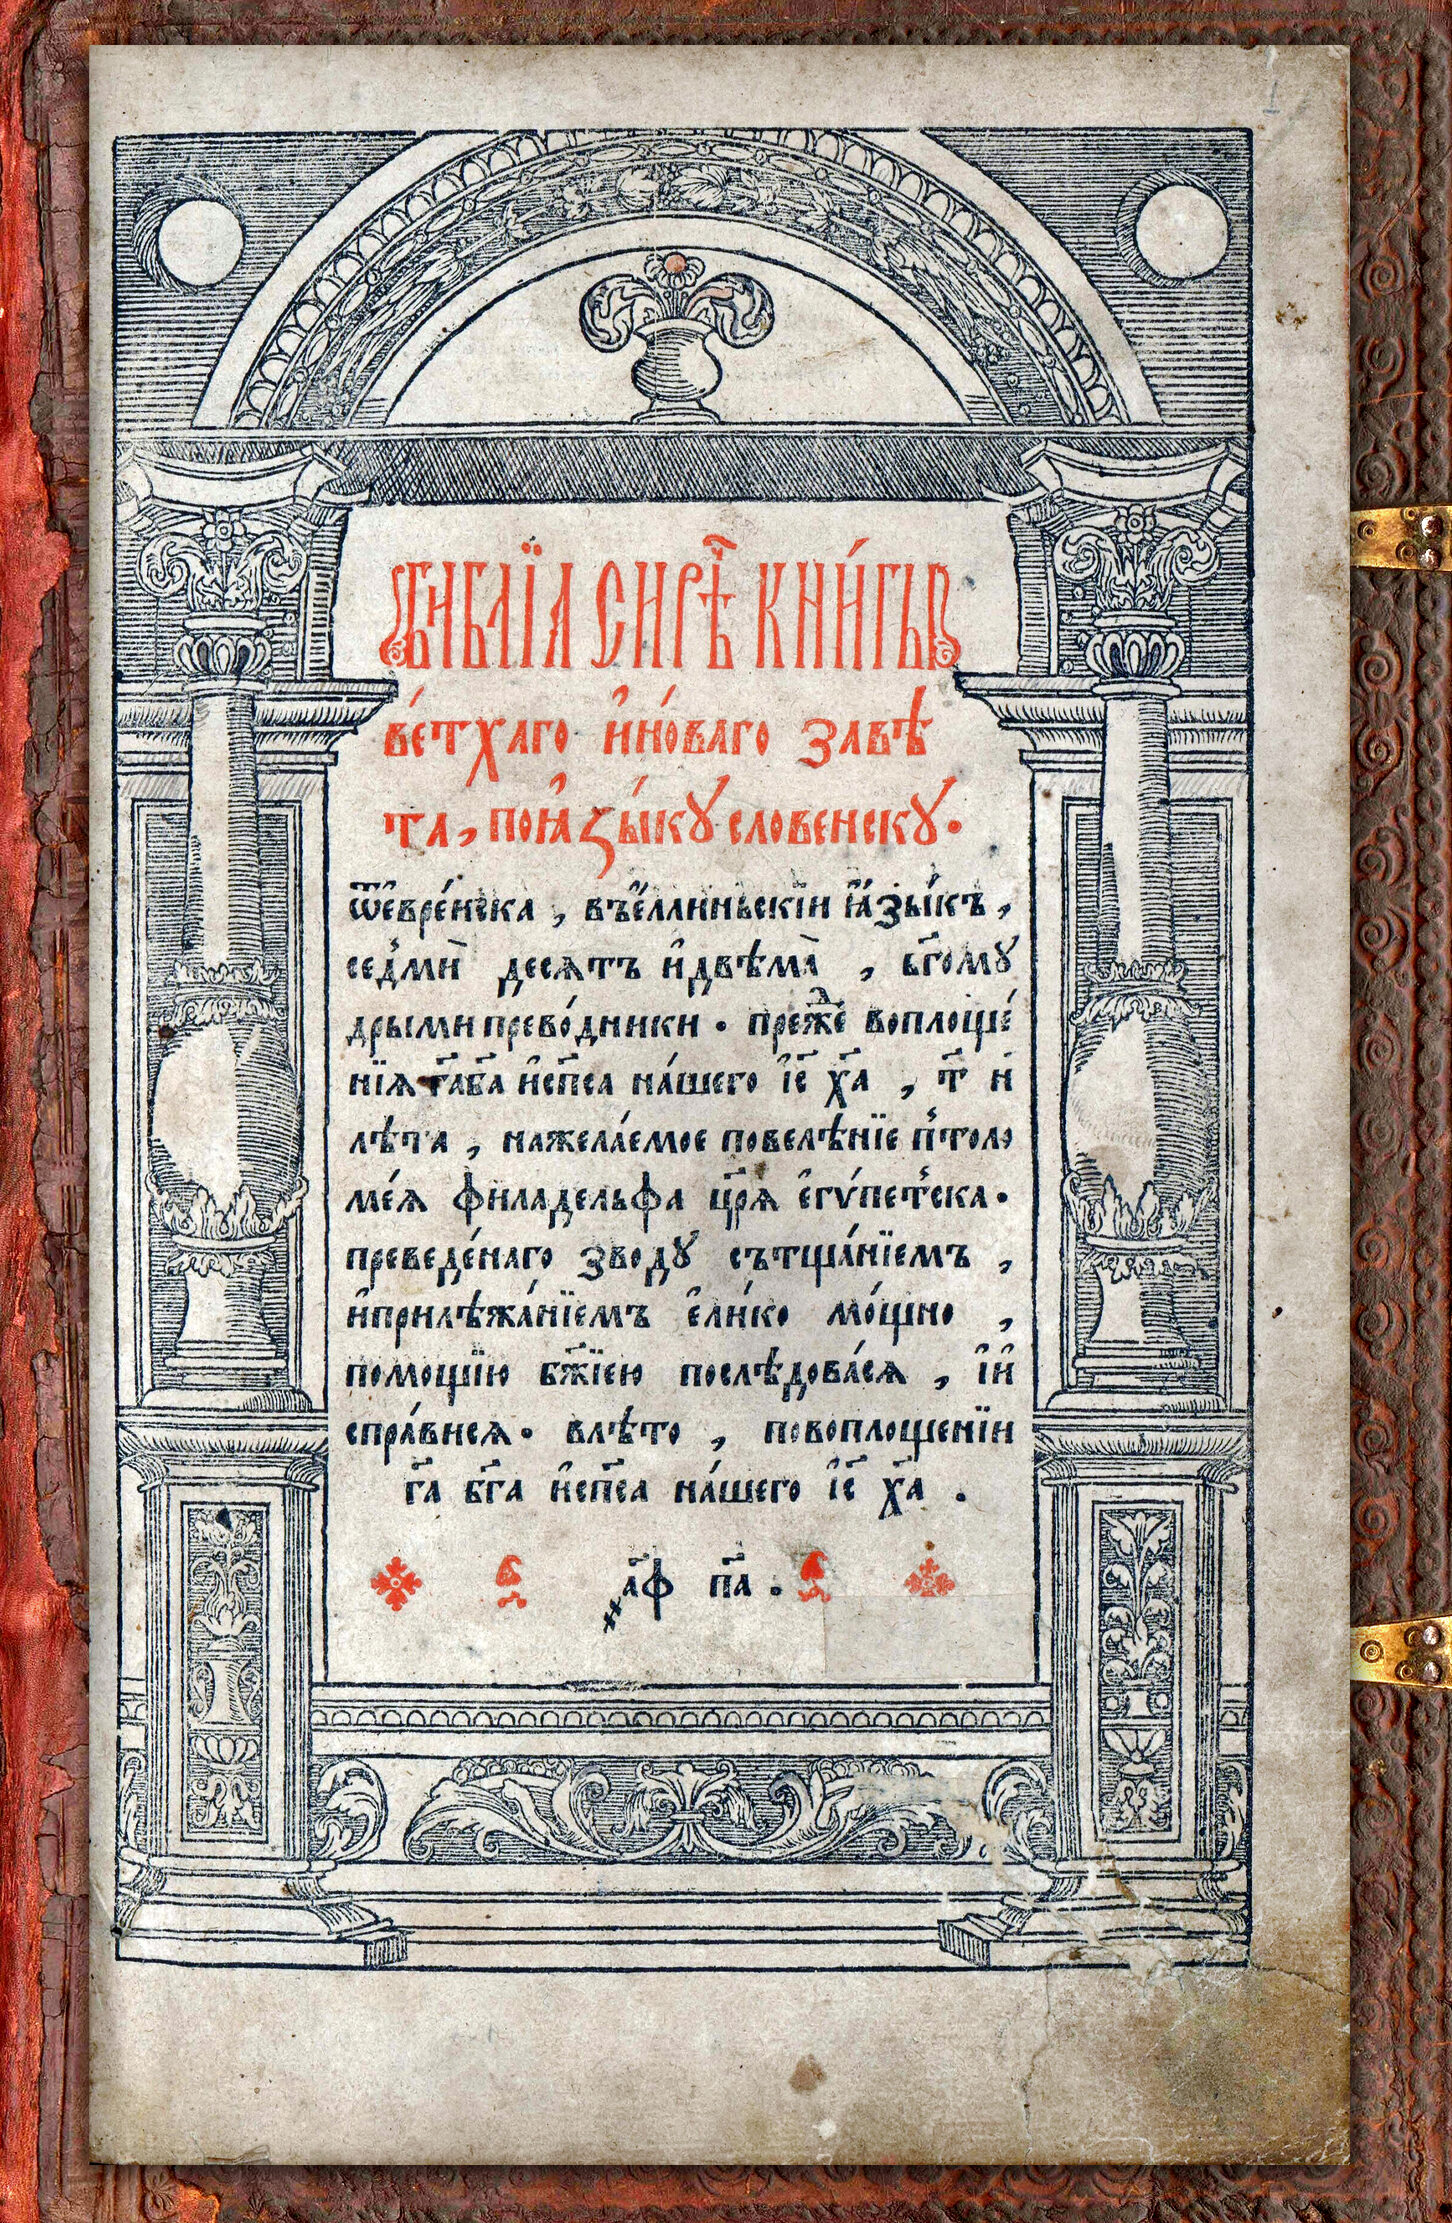 Бі́блїа сирѣ́ч кни́гы
ве́тхаго и҆но́ваго завѣ
та, поꙗ҆зы́ку словенску.
ѿе҆вре́йска, въе҆́ллиньскїи ꙗ҆зы́къ,
седми́ десятъ и҆двѣма̀, бг҃ому
дрыми прево́дники. пре́жде воплоще́
нїя га҃ба҃ и҆сп҃са на́шего і҆с҃ ха҃, т҃ и
лѣта, нажела́емое повелѣ́нїе п҆толо
ме́я филаде́льфа цр҃я е҆гѵ́петска.
преведе́наго зводу сътща́нїемъ,
и҆прилѣжа́нїемъ е҆ли́ко мо́щно,
помощїю бж҃їею послѣдова́ся, і҆и҆
спра́вися. влѣ́то, повоплощенїи
га҃ бг҃а и҆сп҃са на́шего і҆с҃ ха҃.
҂а҃ф п҃а.